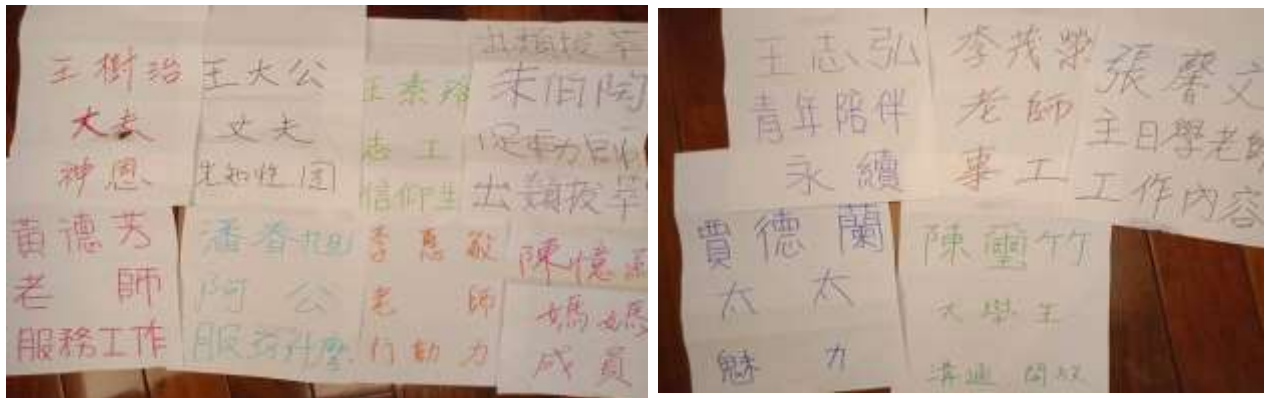 王樹治
大夫
神恩
王大公
丈夫
先知性
王素
志工
信仰生
出類拔萃
出類拔萃
黃德芳
老師
服務工作
潘春旭
阿公
服務什麼
李惠敏
老師
行動力
陳憶
媽媽
成員
王志弘
青年陪伴
永續
李茂榮
老師
事工
張馨文
主日學老師
工作內容
賈德蘭
太太
魅力
陳璽竹
大學生
溝通